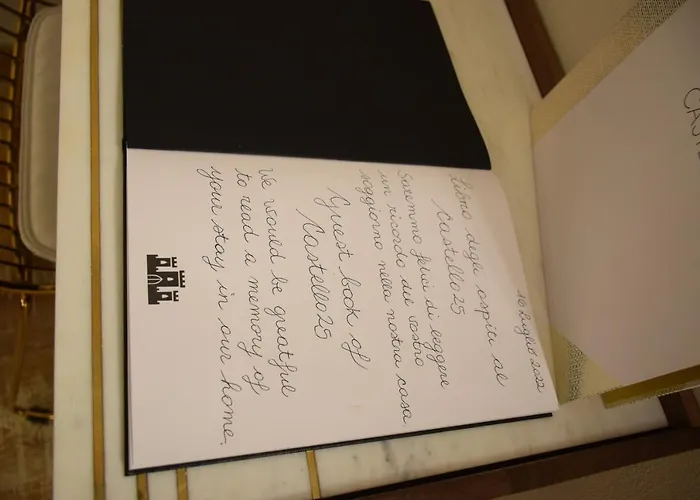 16 luglio 2022
Libro degli ospiti al
Castello25
Saremmo felici di leggere
un ricordo del vostro
soggiorno nella nostra casa
Guest book of
Castello25
We would be greatful
to read a memory of
your stay in our home.
CASTE